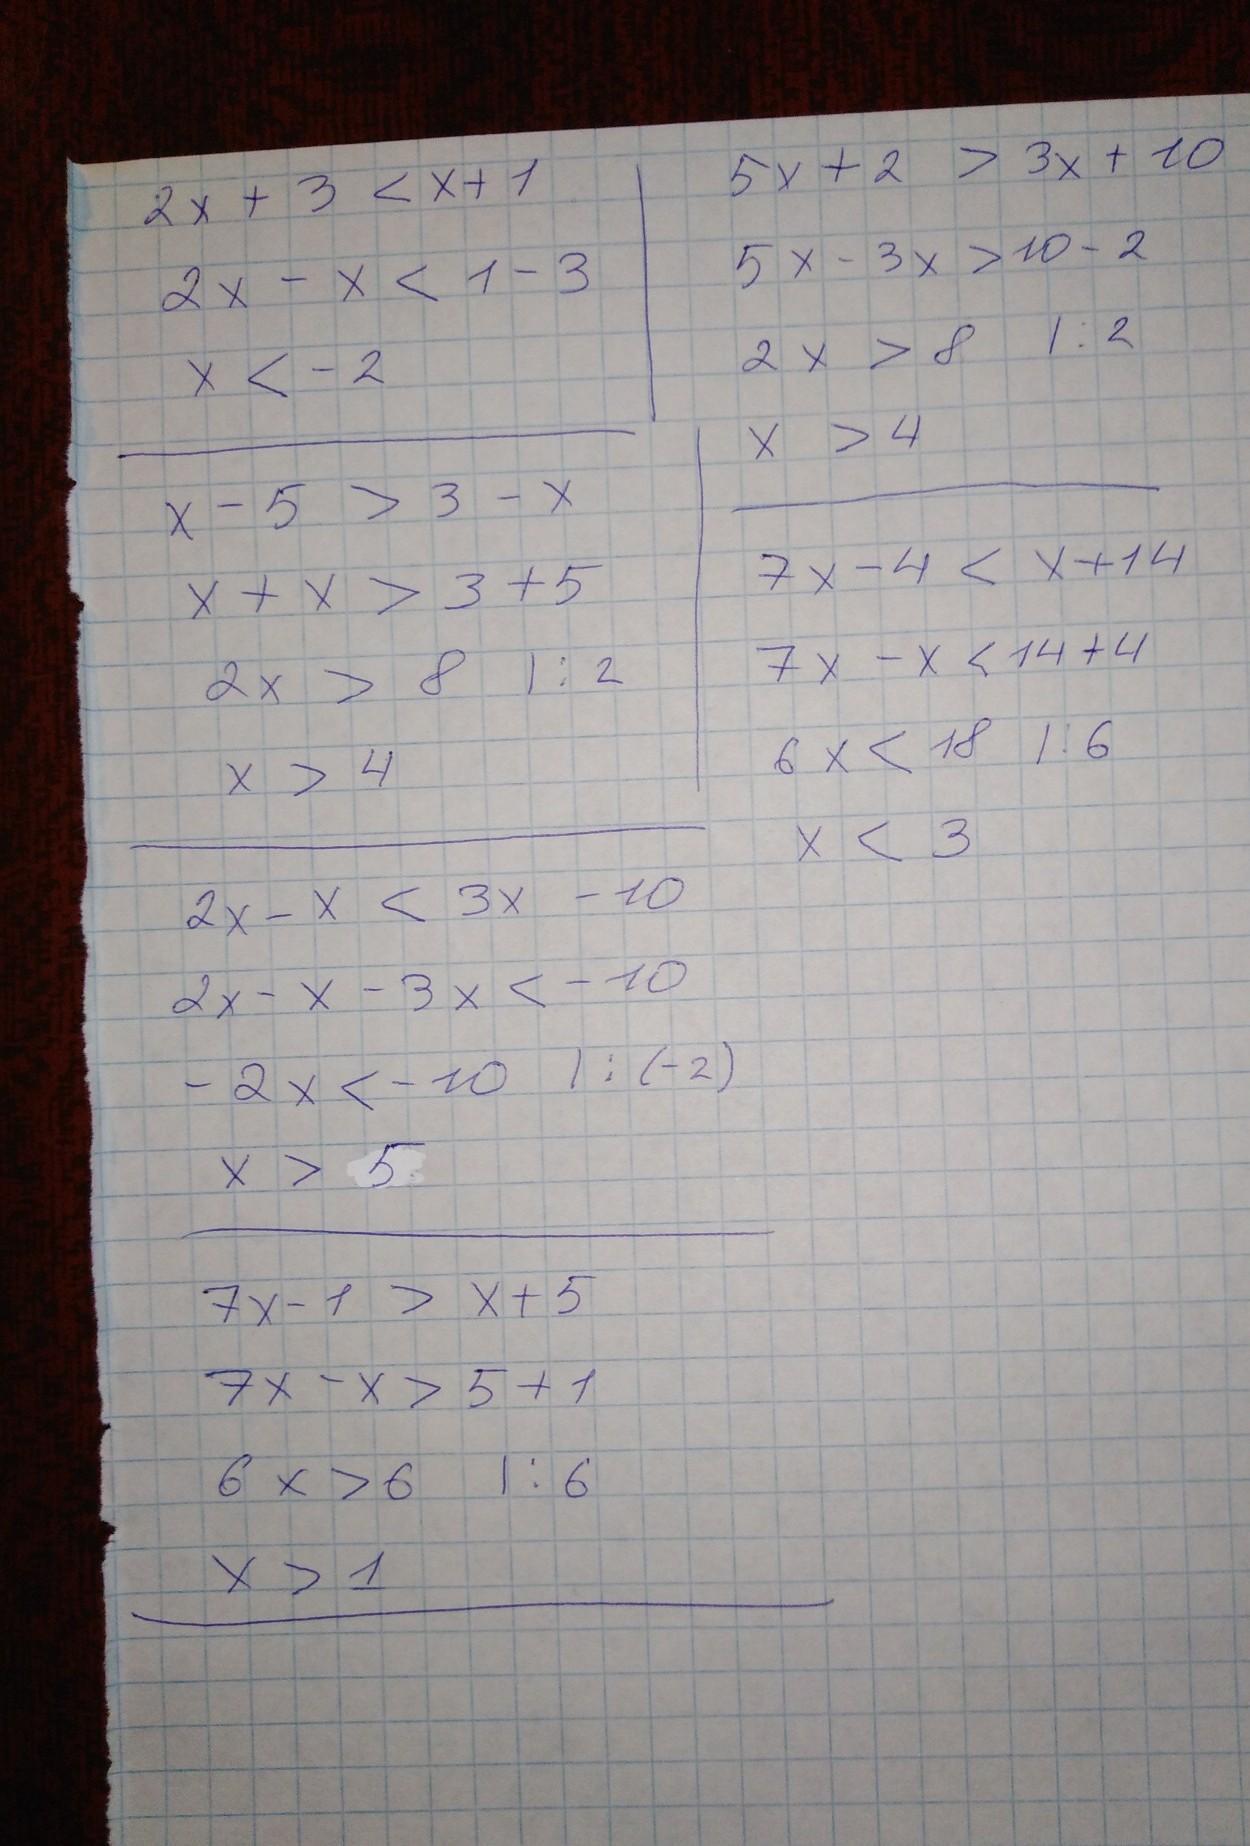 2x + 3 < x + 1
2x - x < 1 - 3
x < - 2
x - 5 > 3 - x
x + x > 3 + 5
2x > 8 | : 2
x > 4
2x - x < 3x - 10
2x - x - 3x < - 10
- 2x < - 10 | : (-2)
x > 5
7x - 1 > x + 5
7x - x > 5 + 1
6x > 6 | : 6
x > 1
5x + 2 > 3x + 10
5x - 3x > 10 - 2
2x > 8 | : 2
x > 4
7x - 4 < x + 14
7x - x < 14 + 4
6x < 18 | : 6
x < 3